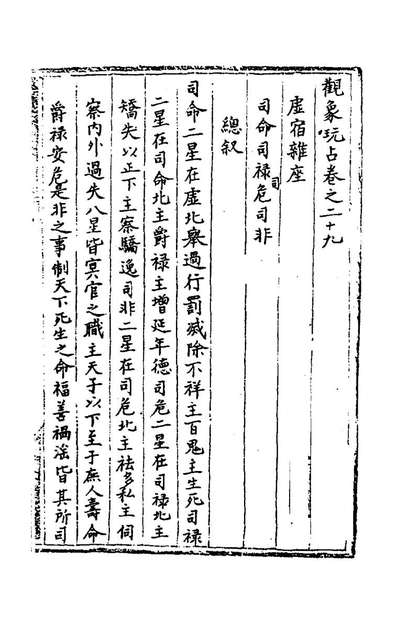 觀象玩占卷之二十九
虛宿雜座
司命司祿司危司非
總叙
司命二星在虛北舉過行罰滅除不祥主百鬼主生死司祿
二星在司命北主爵祿主增延年德司危二星在司祿北主
矯失以正下主察驕逸司非二星在司危北主祛多私主伺
察內外過失八星皆冥官之職主天子以下至于庶人壽命
爵祿安危是非之事制天下死生之命福善禍淫皆其所司